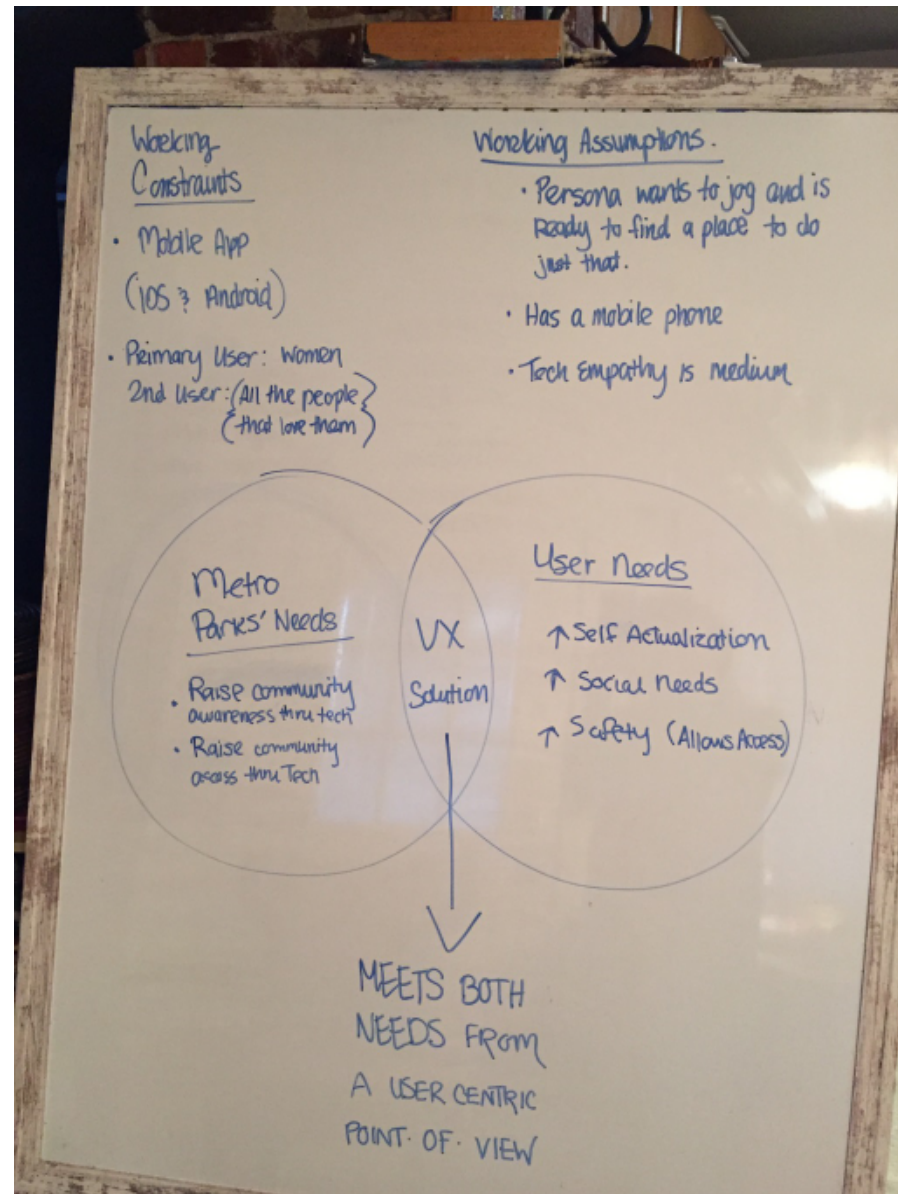 Working
Constraints
• Mobile App
(iOS & Android)
• Primary User: Women
2nd User: (All the people)
(that love them)
Working Assumptions.
• Persona wants to jog and is
Ready to find a place to do
just that.
• Has a mobile phone
• Tech Empathy is medium
Metro
Parks' Needs
• Raise community
awareness thru tech
• Raise community
access thru Tech
UX
Solution
User Needs
↑ Self Actualization
↑ Social Needs
↑ Safety (Allows Access)
MEETS BOTH
NEEDS FROM
A USER CENTRIC
POINT. OF. VIEW